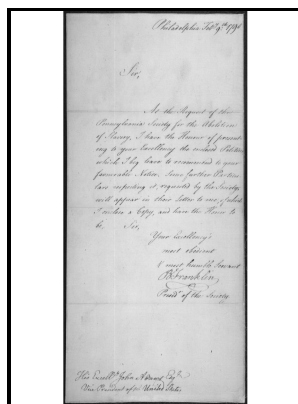 Philadelphia Feb. 9th 1790
Sir,
At the Request of the
Pennsylvania Society for the Abolition
of Slavery, I have the Honour of present
ing to your Excellency the enclosed Petition
which I beg leave to recommend to your
favourable Notice. Some further Particu
lars respecting it, requested by the Society,
will appear in their Letter to me, of which
I enclose a Copy, and have the Honor to
be, Sir,
Your Excellency's
most obedient
& most humble Servant
B Franklin,
Presidt. of the Society
His Excelly. John Adams Esqr.
Vice President of the United States